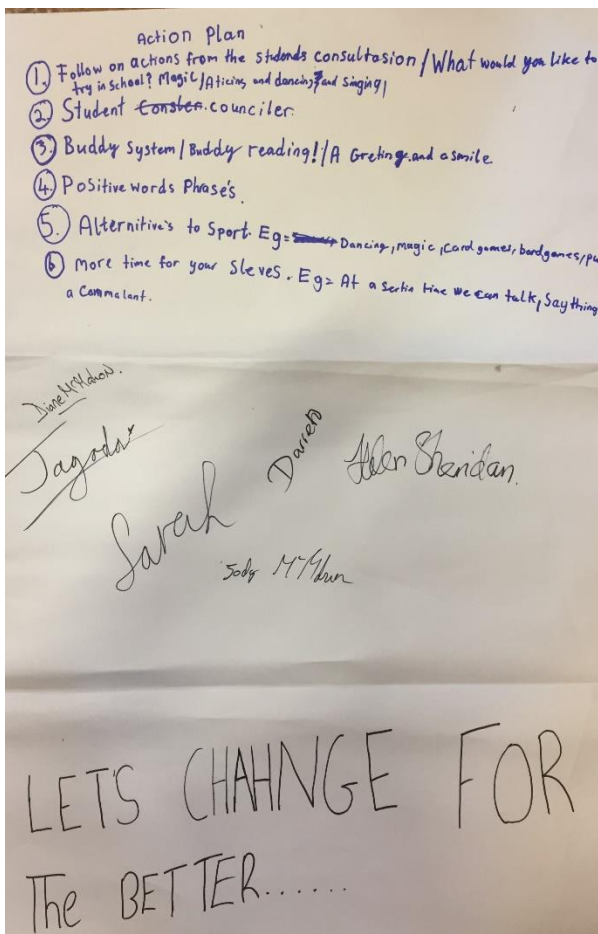 Action Plan
1. Follow on actions from the stidends consultasion / What would you like to
try in school? Magic / Aticing and dancing, and singing,
2. Student counciler.
3. Buddy System / Buddy reading! / A Greting and a smile
4. Positive words Phrase's.
5. Alternitive's to Sport. Eg= Dancing, magic, card games, bordgames, pu
6 more time for your sleves. Eg= At a sertin time we can talk, Say thing
a Commalant.
Diane McMahon.
Jagoda
Darren
Helen Sheridan.
Sarah
Jody McMahon
LET'S CHAHNGE FOR
The BETTER......